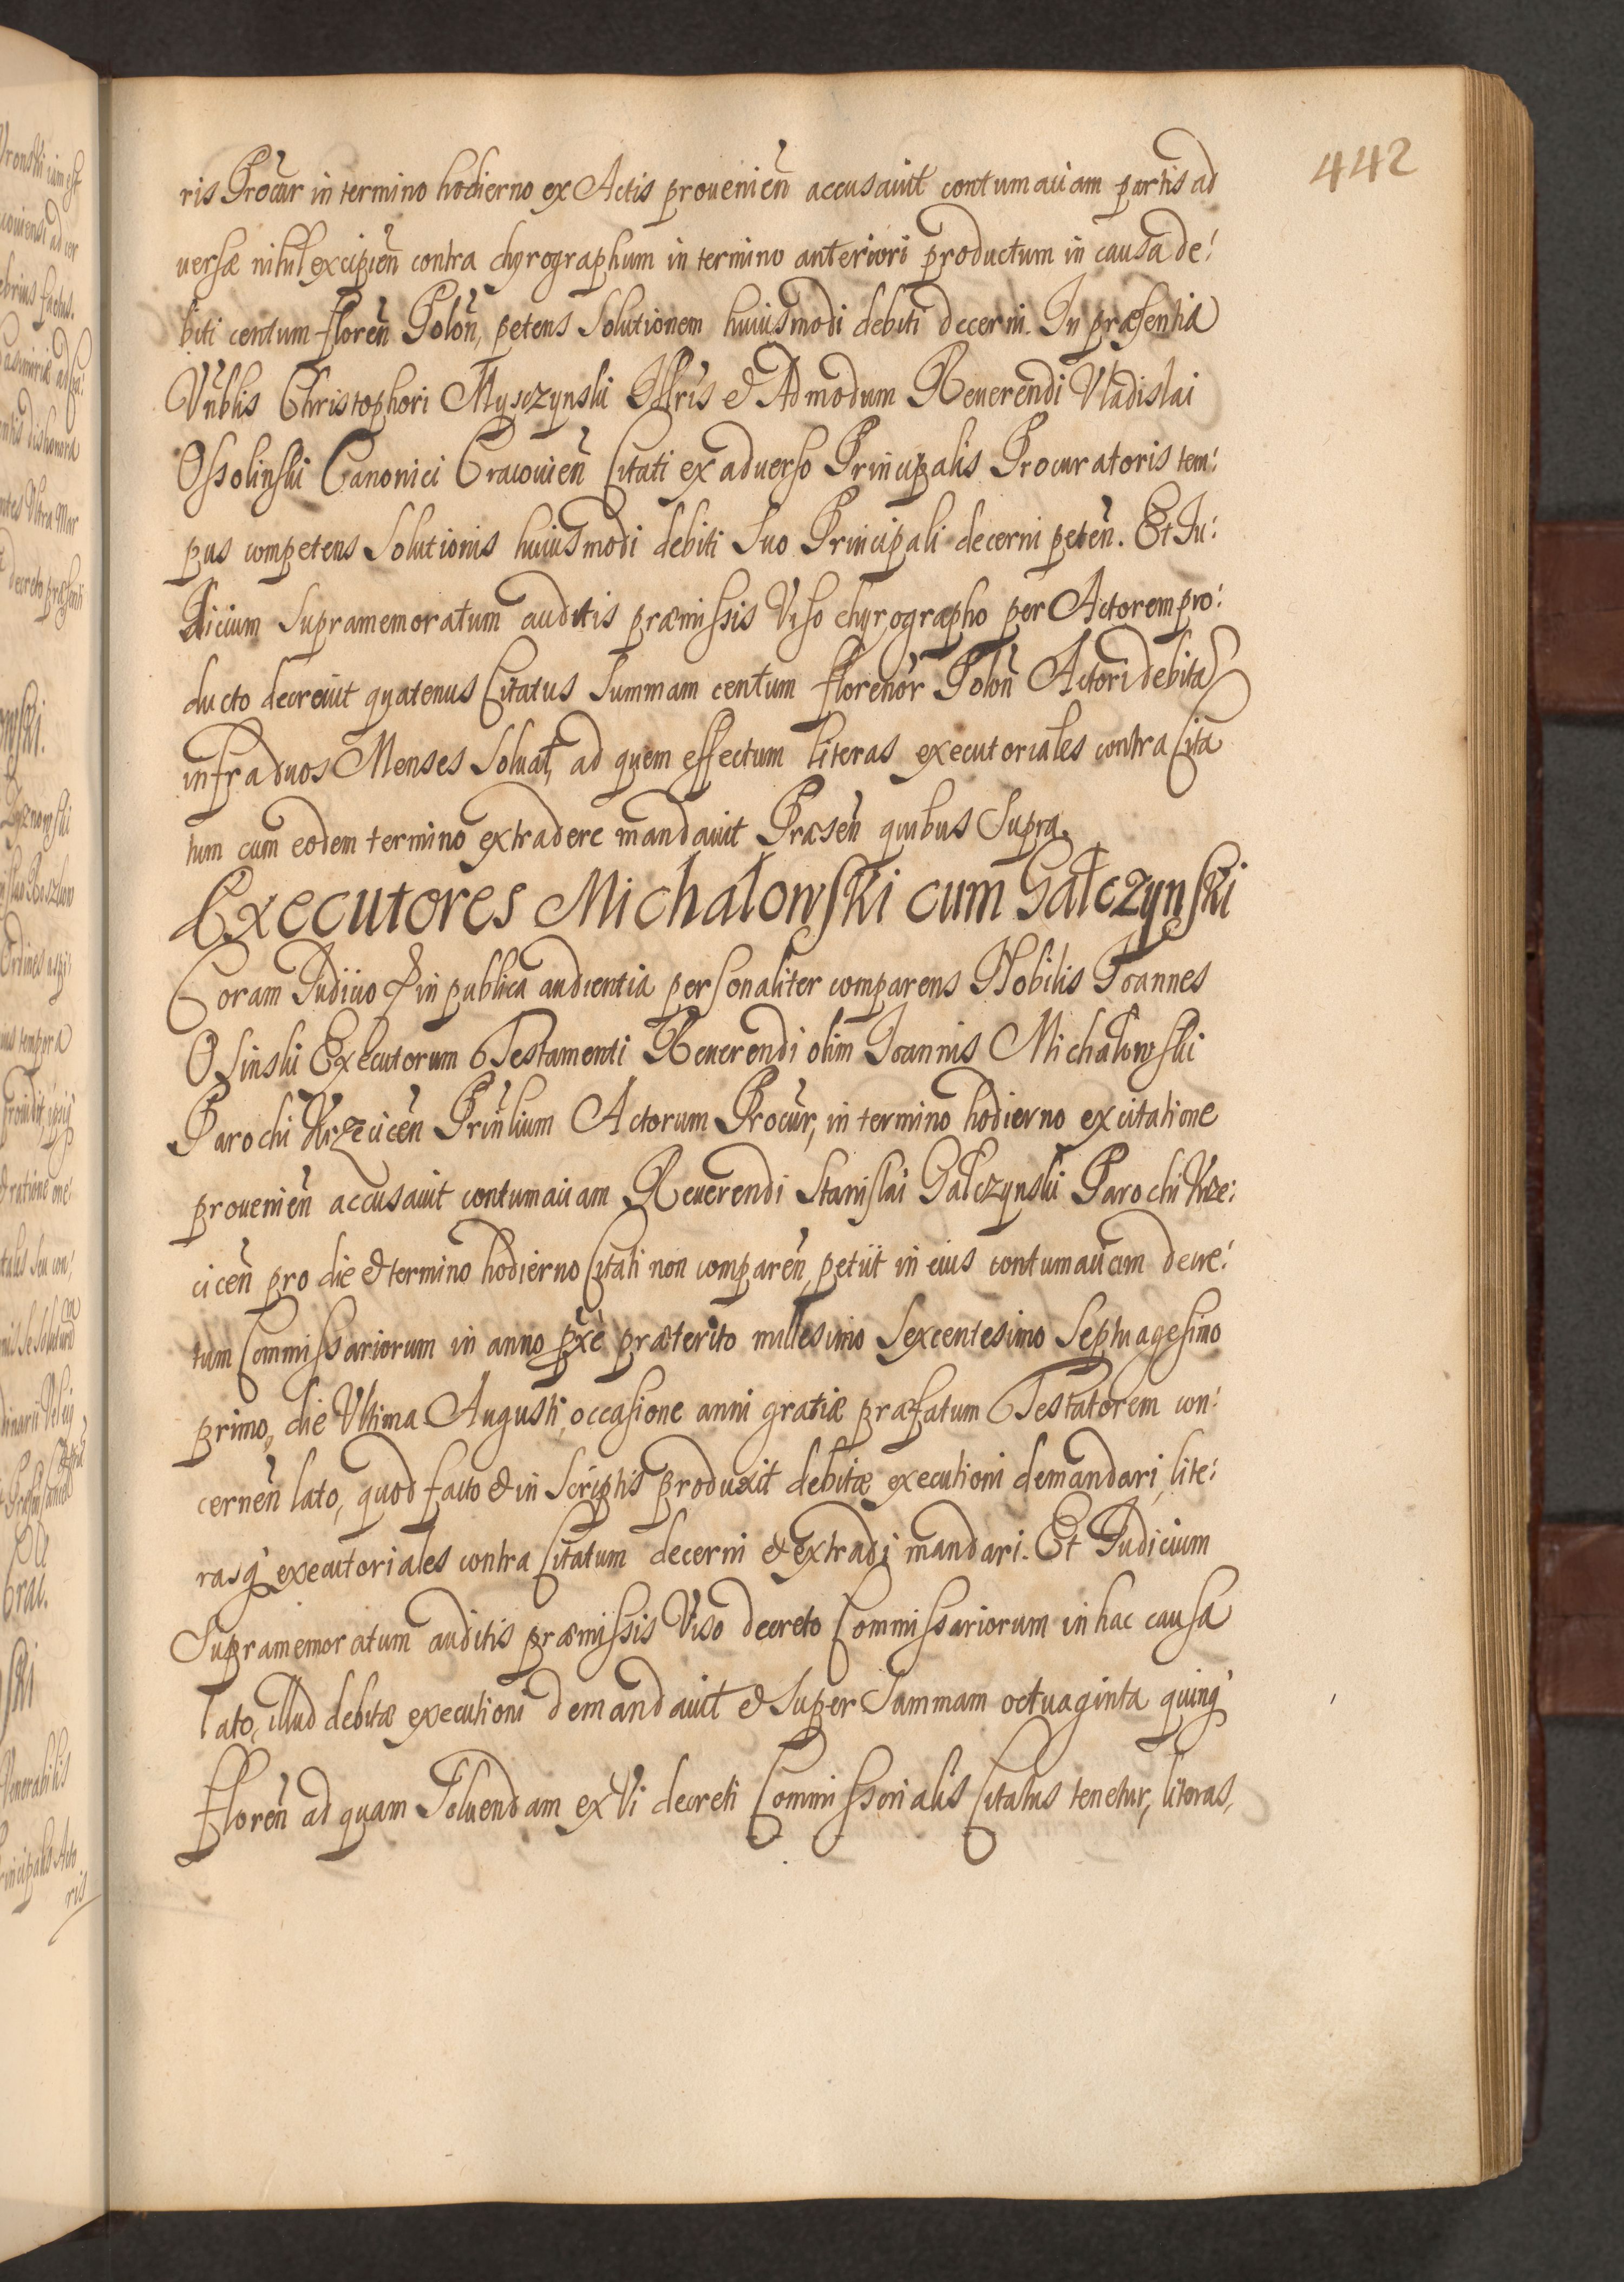 442
ris Procur in termino hodierno ex Actis prouenień accusauit contumaciam partis ad
uersæ nihil excipień contra chyrographum in termino anteriori productum in causa de:
biti centum floreń Poloń, petens Solutionem huiusmodi debiti decerni. In præsentia
Vnblis Christophori Myszczynski Illris & Admodum Reuerendi Vladislai
Ossolinski Canonici Cracouień Citati ex aduerso Principalis Procuratoris tem:
pus competens Solutionis huiusmodi debiti Suo Principali decerni peteń. Et Iu:
dicium Supramemoratum auditis præmissis Viso chyrographo per Actorem pro:
ducto decreuit quatenus Citatus Summam centum florenor Poloń Actori debita
infra duos Menses Soluat, ad quem effectum literas executoriales contra Cita
tum cum eodem termino extradere mandauit Præseń quibus Supra.
Executores Michałowski cum Gałczynski
Coram Iudicio & in publica audientia personaliter comparens Nobilis Ioannes
Osinski Executorum Testamenti Reuerendi olim Ioannis Michałowski
Parochi Krzęciceń Prinlium Actorum Procur, in termino hodierno ex citatione
prouenień accusauit contumaciam Reuerendi Stanislai Gałczynski Parochi Krze:
ciceń pro die & termino hodierno Citati non compareń, petiit in eius contumaciam decre:
tum Commissariorum in anno pxe præterito millesimo Sexcentesimo Septuagesimo
primo, die Vltima Augusti, occasione anni gratiæ præfatum Testatorem con:
cerneń lato, quod facto & in Scriptis produxit debitæ executioni demandari, lite:
rasq executoriales contra Citatum decerni & extradi mandari. Et Iudicium
Supramemoratum auditis præmissis Viso decreto Commissariorum in hac causa
lato, illud debitæ executioni demandauit & super Summam octuaginta quinq
floreń ad quam Soluendam ex Vi decreti Commissorialis Citatus tenetur, literas,